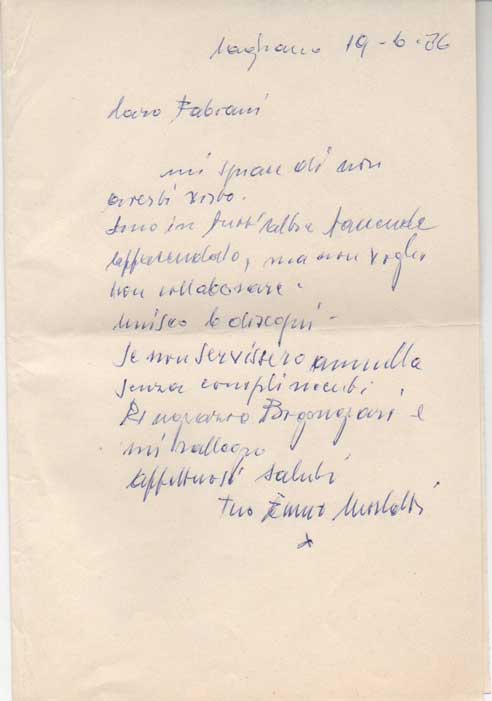 19-6-76
Caro Fabiani
mi spiace di non
averti visto.
Sono in tutt'altre faccende
affaccendato, ma non voglio
non collaborare.
Unisco 6 disegni.
Se non servissero annulla
senza complimenti.
Ringrazio Bigongiari e
mi rallegro
Affettuosi saluti
Tuo